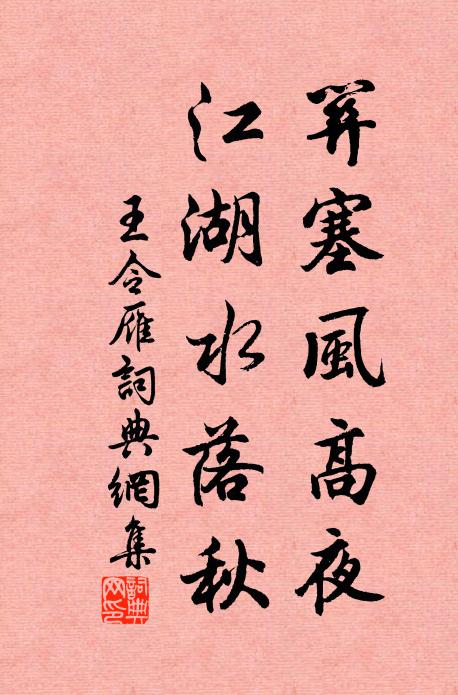 笄塞風高夜
江湖水落秋
王令雁詞典網集
詞典
网印